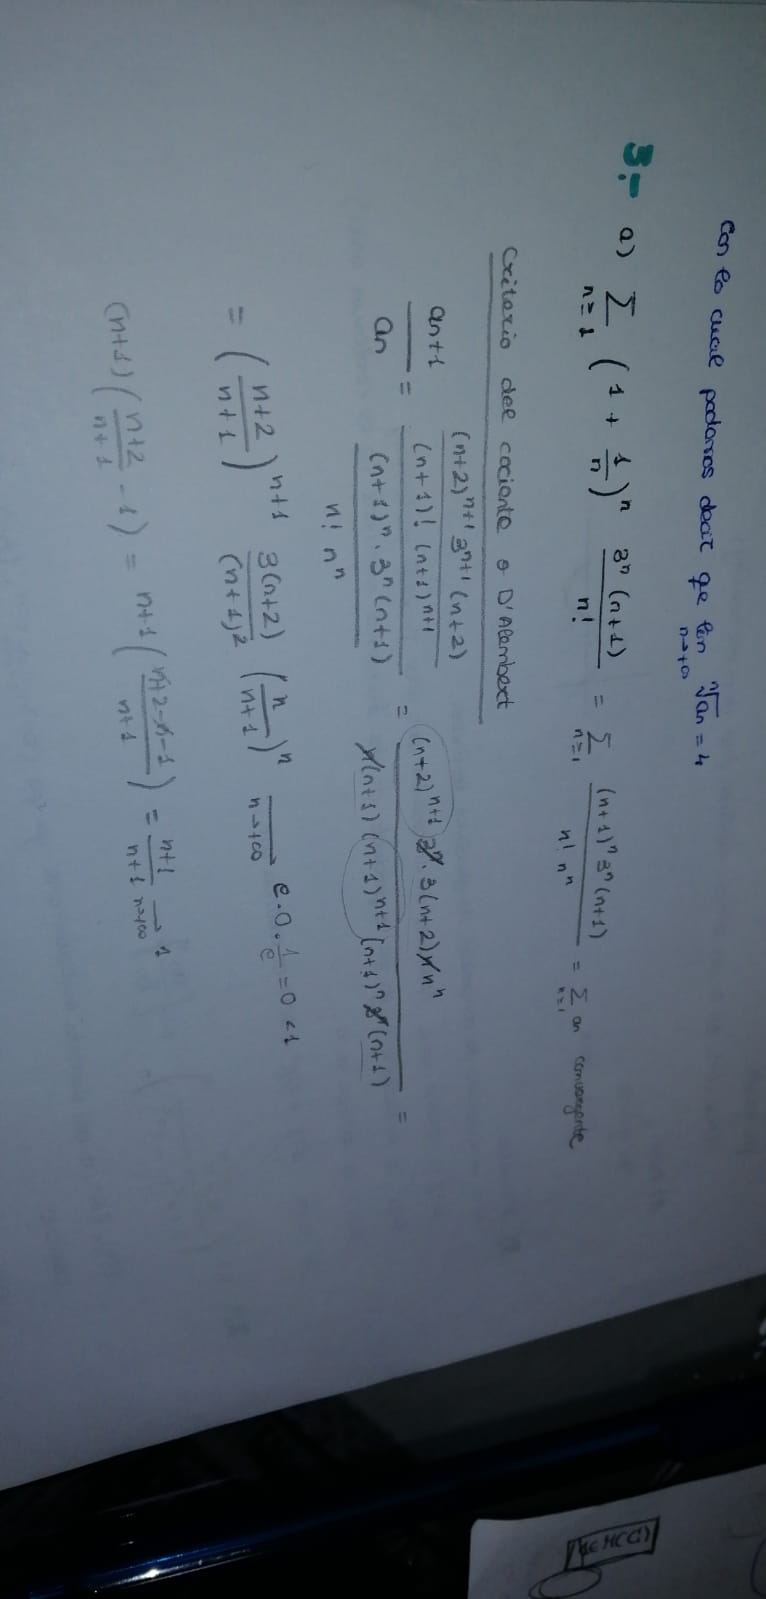 Con lo cual podemos decir qe lim n→+∞ ⁿ√an = 4
3.- a) Σ n≥1 (1 + 1/n)^n 3^n (n+1)/n! = Σ n≥1 (n+1)^n 3^n (n+1)/(n! n^n) = Σ n≥1 an convergente
Criterio del cociente o D'Alembert
an+1/an = ((n+2)^(n+1) 3^(n+1) (n+2)/((n+1)! (n+1)^(n+1)))/((n+1)^n · 3^n (n+1)/(n! n^n)) = (n+2)^(n+1) 3^n · 3(n+2) n! n^n/(n!(n+1) (n+1)^(n+1) (n+1)^n 3^n (n+1)) =
= ((n+2)/(n+1))^(n+1) 3(n+2)/(n+1)^2 (n/(n+1))^n → n→+∞ e · 0 · 1/e = 0 < 1
(n+1)((n+2)/(n+1) - 1) = n+1((n+2-n-1)/(n+1)) = (n+1)/(n+1) → n→+∞ 1